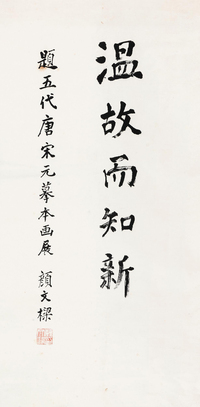 温故而知新
题五代唐宋元摹本画展 颜文樑